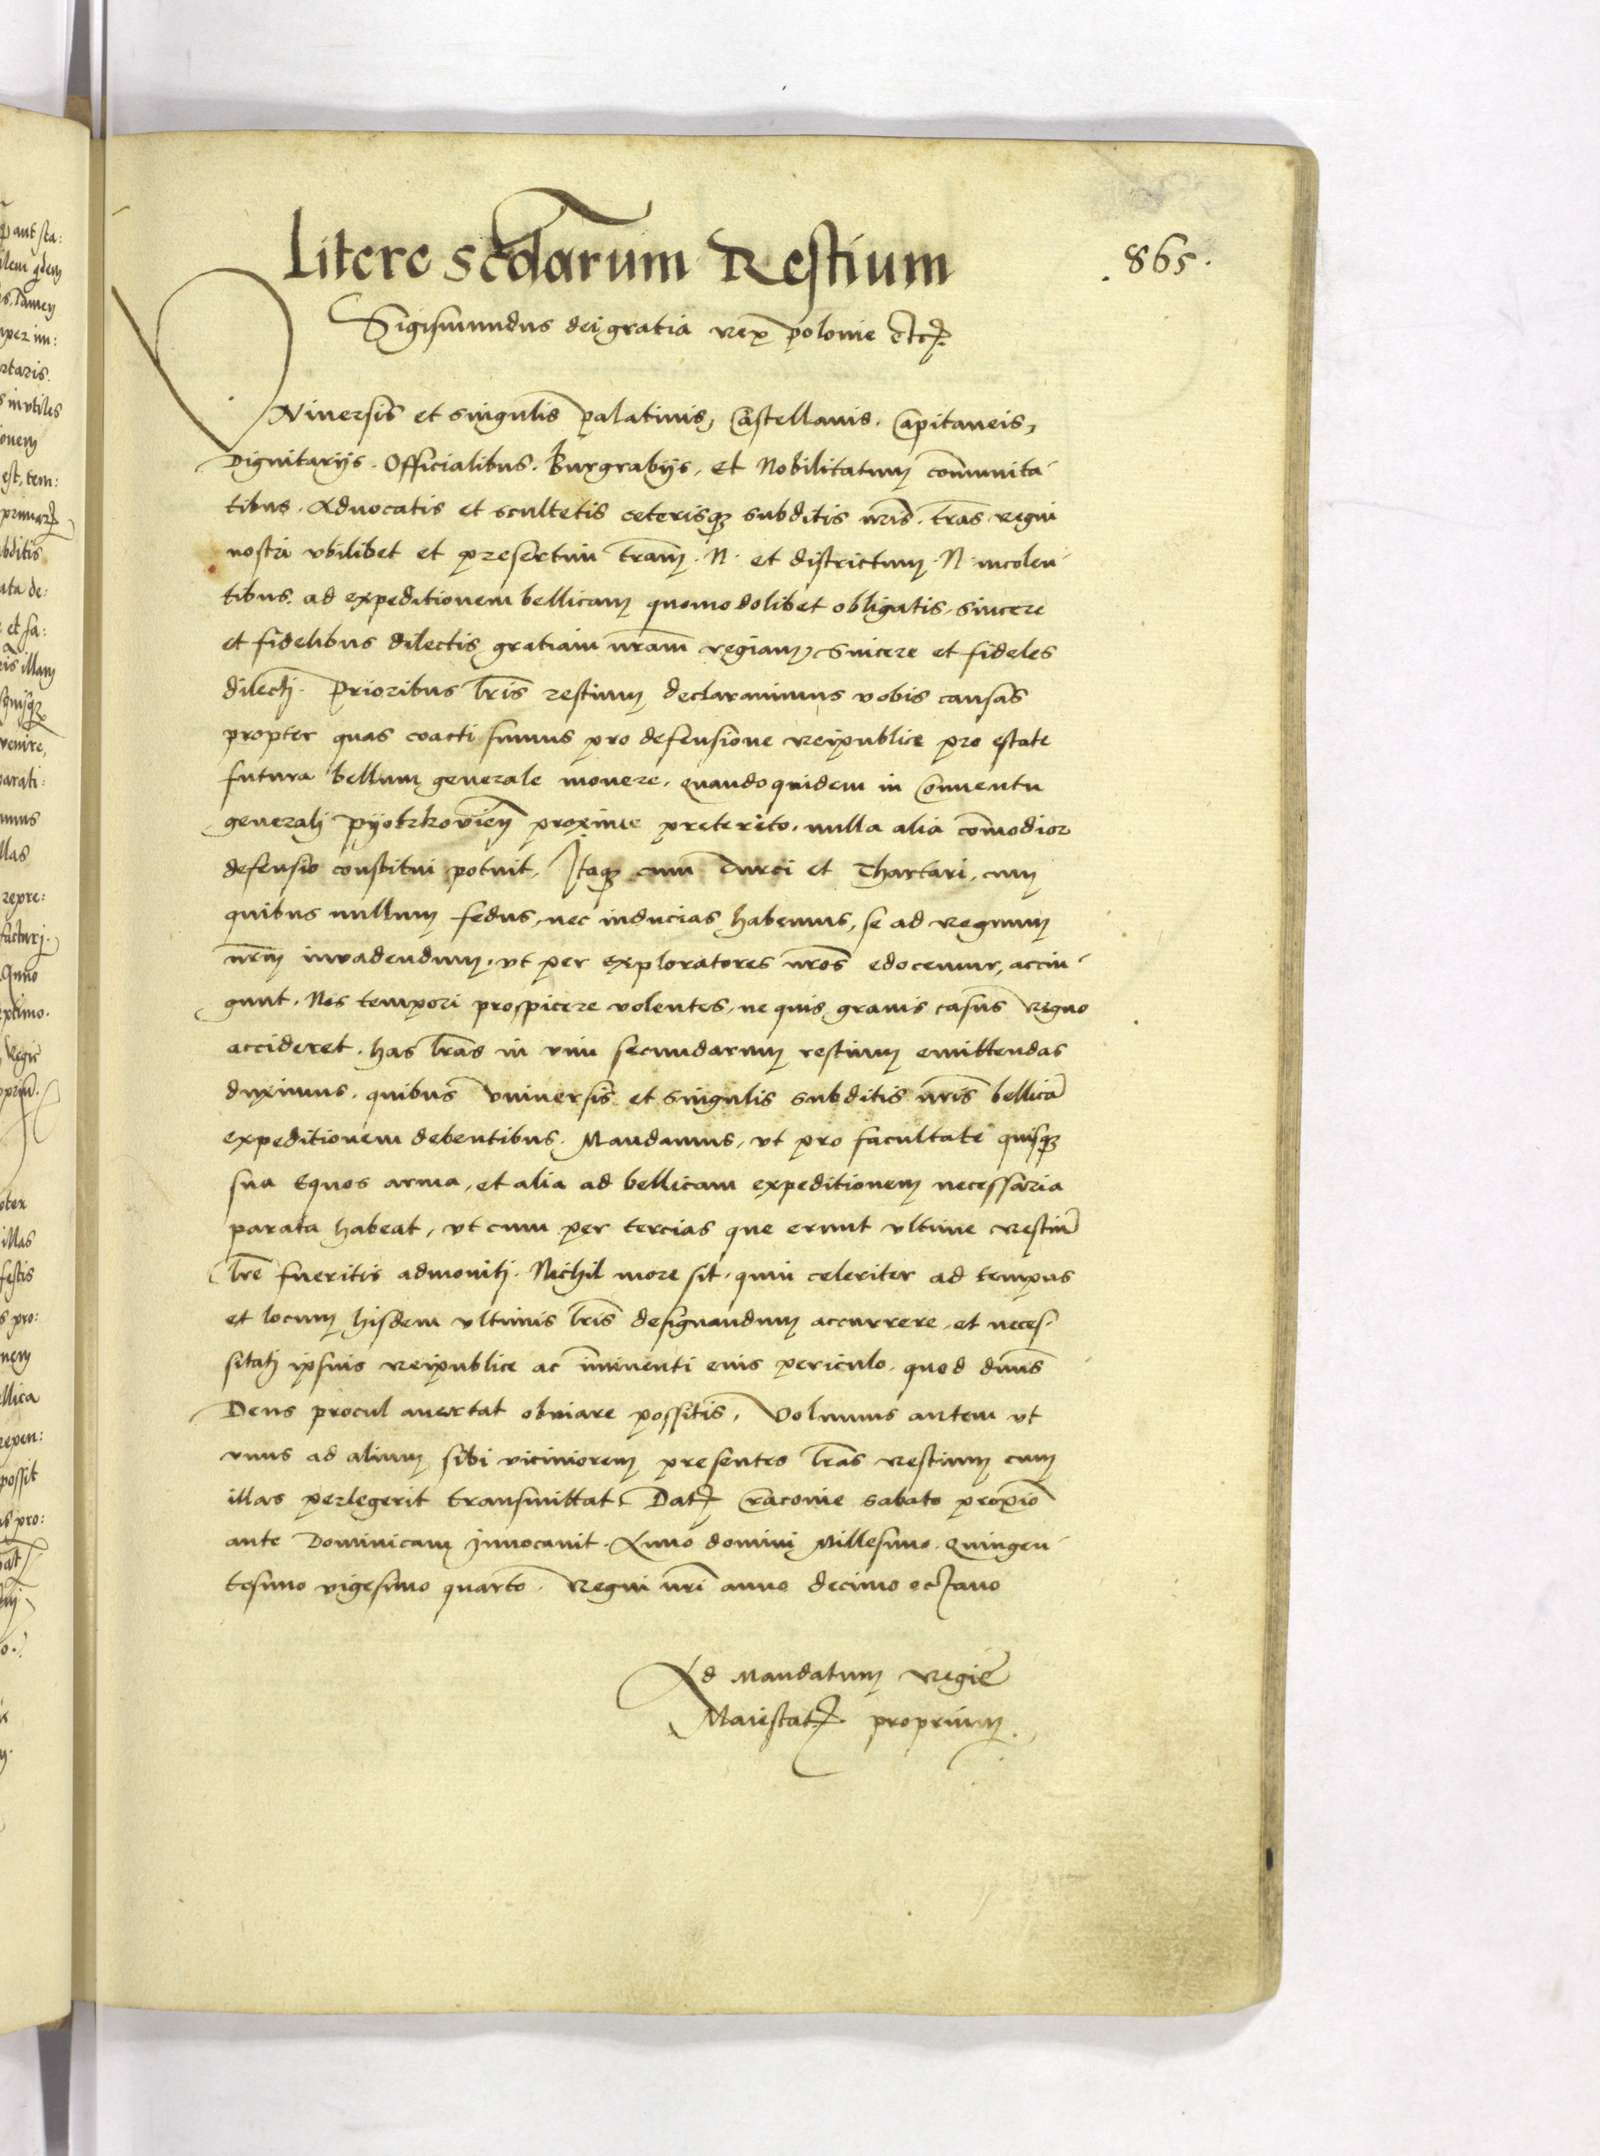 Litere scdarum Restium
.865.
Sigismundus dei gratia rex polonie etc.
Vniversis et singulis palatinis, Castellanis. Capitaneis,
Dignitarijs. Officialibus. Burgrabijs, et Nobilitatum communita-
tibus. Aduocatis et scultetis ceterisque subditis nris. tras regni
nostri vbilibet et presertim tram. N. et districtum. N. incolen-
tibus. ad expeditionem bellicam quomodolibet obligatis. sincere
et fidelibus dilectis gratiam nram regiam. Sincere et fideles
dilecti. Prioribus lris restium declarauimus vobis causas
propter quas coacti sumus pro defensione reipublice pro estate
futura bellum generale mouere. quandoquidem in Conuentu
generali Pyotrkovien proxime preterito. nulla alia commodior
defensio constitui potuit. Itaque cum Turci et Thartari, cum
quibus nullum fedus, nec inducias habemus, se ad regnum
nrm invadendum. vt per exploratores nros edocemur, accin-
gunt. Nos tempori prospicere volentes, ne quis grauis casus regno
accideret. has lras in vim secundarum restium emittendas
duximus. quibus vniversis et singulis subditis nris bellica
expeditionem debentibus. Mandamus, vt pro facultate quisque
sua Equos arma, et alia ad bellicam expeditionem necessaria
parata habeat, vt cum per tercias que erunt vltime restiu
lre fueritis admoniti. Nichil more sit. quin celeriter ad tempus
et locum hisdem vltimis lris designandum accurrere, et neces-
sitati ipsius reipublice ac iminenti eius periculo. quod dnus
Deus procul auertat obuiare possitis. Volumus autem vt
vnus ad alium sibi viciniorem presentes lras restium cum
illas perlegerit transmittat. Dat Cracouie sabato proximo
ante Dominicam Inuocauit. Anno domini Millesimo. Quingen-
tesimo vigesimo quarto. Regni nri anno decimo octauo
Ad Mandatum Regie
Maiestat proprium.